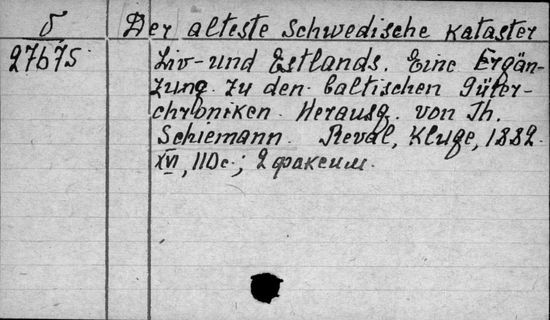 б Der älteste Schwedische Kataster
27675 Liv- und Estlands. Eine Ergän-
zung zu den baltischen Güter-
chroniken. Herausg. von Th.
Schiemann. Reval, Kluge, 1882.
XVI, 110 с.; 2 факсим.